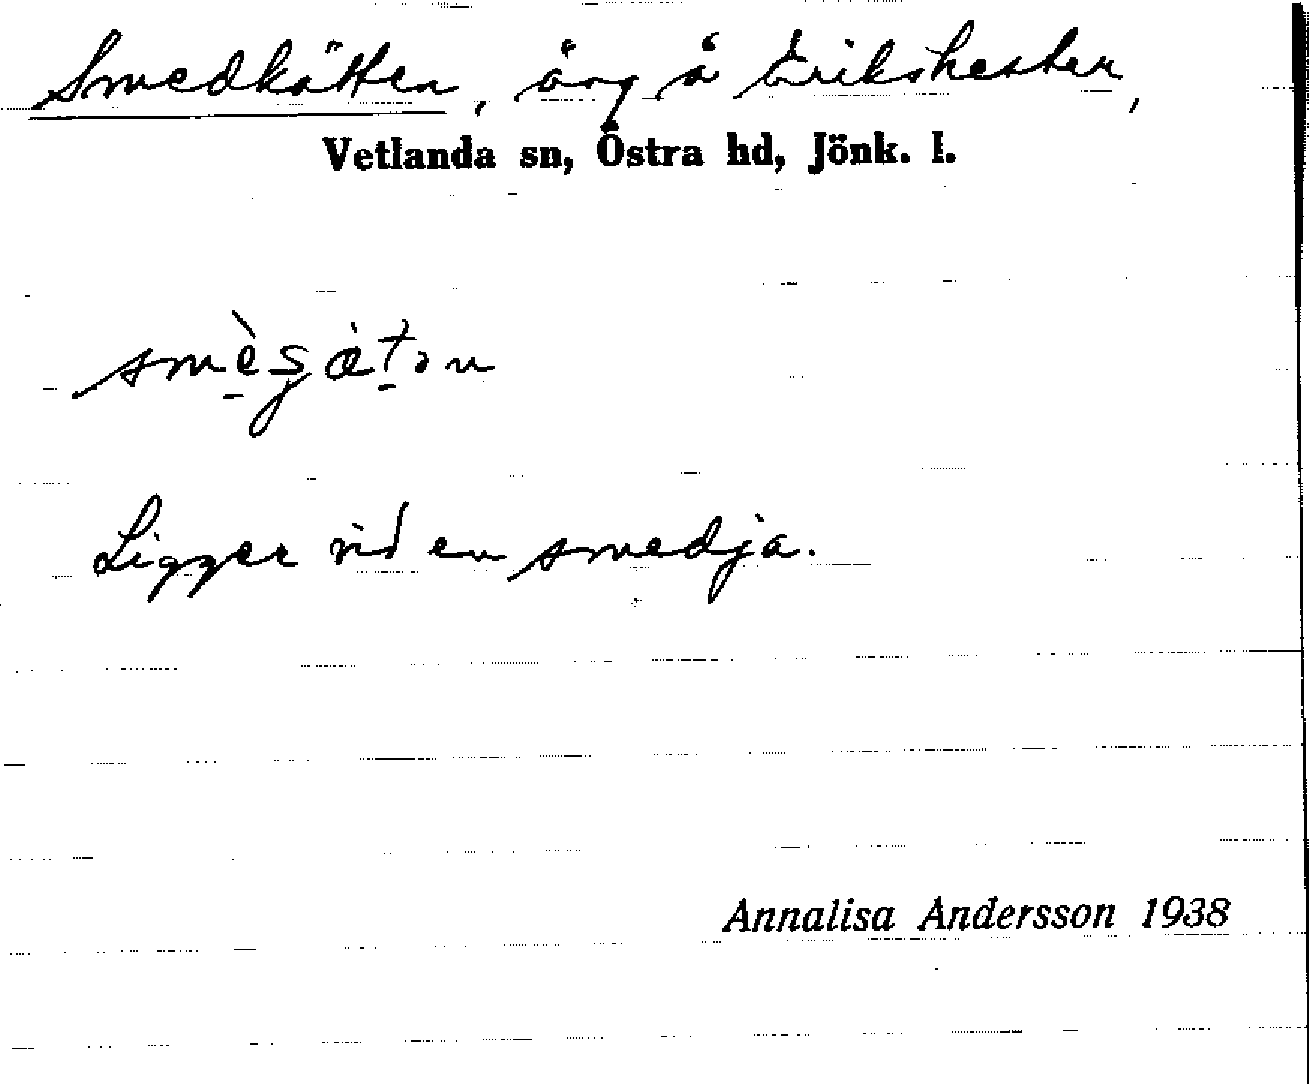 Smedkätten, äng å Erikshester,
Vetlanda sn, Östra hd, Jönk. l.
Ligger vid en smedja.
Annalisa Andersson 1938